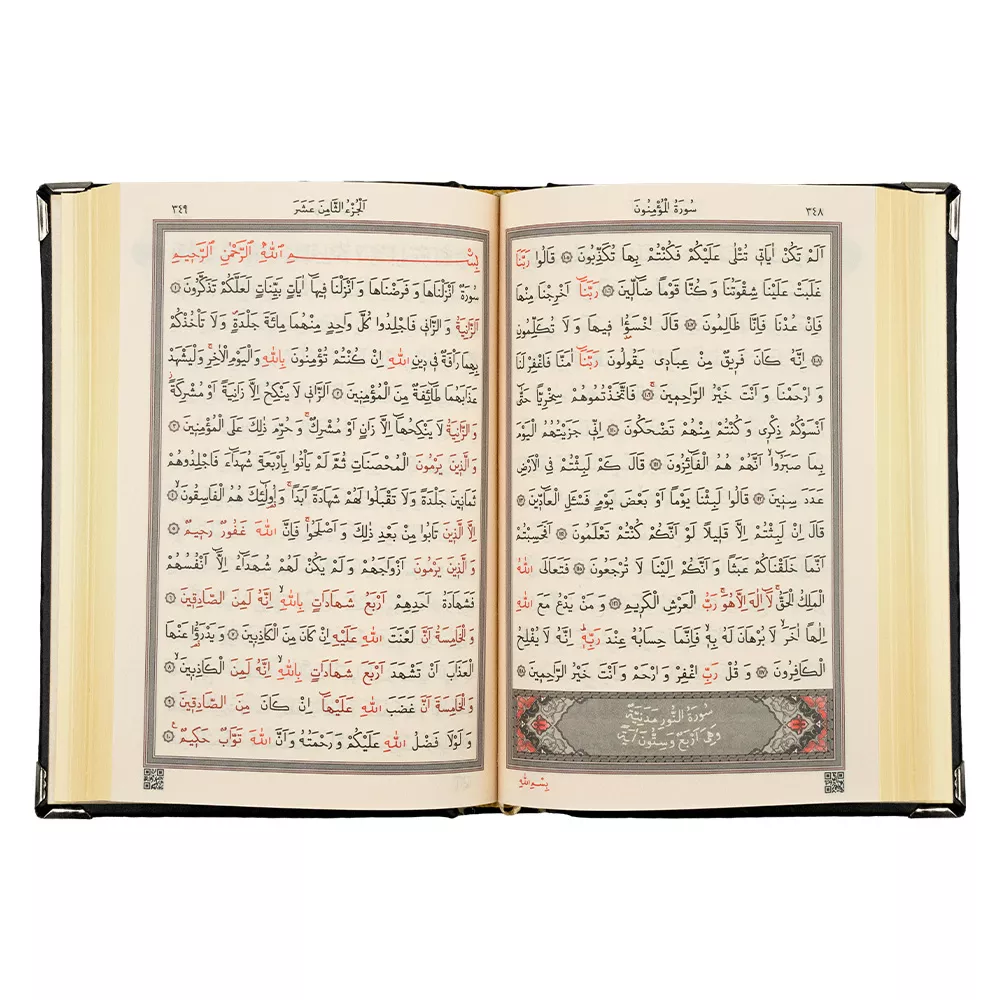 ٣٤٨
سُورَةُ الْمُؤْمِنُونَ
اَلَمْ تَكُنْ اٰيَاتٖي تُتْلٰى عَلَيْكُمْ فَكُنْتُمْ بِهَا تُكَذِّبُونَ ﴿١٠٥﴾ قَالُوا رَبَّنَا
غَلَبَتْ عَلَيْنَا شِقْوَتُنَا وَكُنَّا قَوْمًا ضَٓالّٖينَ ﴿١٠٦﴾ رَبَّنَٓا اَخْرِجْنَا مِنْهَا
فَاِنْ عُدْنَا فَاِنَّا ظَالِمُونَ ﴿١٠٧﴾ قَالَ اخْسَؤُ۫ا فٖيهَا وَلَا تُكَلِّمُونِ
﴿١٠٨﴾ اِنَّهُ كَانَ فَرٖيقٌ مِنْ عِبَادٖي يَقُولُونَ رَبَّنَٓا اٰمَنَّا فَاغْفِرْ لَنَا
وَارْحَمْنَا وَاَنْتَ خَيْرُ الرَّاحِمٖينَ ﴿١٠٩﴾ فَاتَّخَذْتُمُوهُمْ سِخْرِيًّا حَتّٰٓى
اَنْسَوْكُمْ ذِكْرٖي وَكُنْتُمْ مِنْهُمْ تَضْحَكُونَ ﴿١١٠﴾ اِنّٖي جَزَيْتُهُمُ الْيَوْمَ
بِمَا صَبَرُٓوا اَنَّهُمْ هُمُ الْفَٓائِزُونَ ﴿١١١﴾ قَالَ كَمْ لَبِثْتُمْ فِي الْاَرْضِ
عَدَدَ سِنٖينَ ﴿١١٢﴾ قَالُوا لَبِثْنَا يَوْمًا اَوْ بَعْضَ يَوْمٍ فَسْـَٔلِ الْعَٓادّٖينَ ﴿١١٣﴾
قَالَ اِنْ لَبِثْتُمْ اِلَّا قَلٖيلًا لَوْ اَنَّكُمْ كُنْتُمْ تَعْلَمُونَ ﴿١١٤﴾ اَفَحَسِبْتُمْ
اَنَّمَا خَلَقْنَاكُمْ عَبَثًا وَاَنَّكُمْ اِلَيْنَا لَا تُرْجَعُونَ ﴿١١٥﴾ فَتَعَالَى اللّٰهُ
الْمَلِكُ الْحَقُّۚ لَٓا اِلٰهَ اِلَّا هُوَۚ رَبُّ الْعَرْشِ الْكَرٖيمِ ﴿١١٦﴾ وَمَنْ يَدْعُ مَعَ اللّٰهِ
اِلٰهًا اٰخَرَۙ لَا بُرْهَانَ لَهُ بِهٖۙ فَاِنَّمَا حِسَابُهُ عِنْدَ رَبِّهٖؕ اِنَّهُ لَا يُفْلِحُ
الْكَافِرُونَ ﴿١١٧﴾ وَقُلْ رَبِّ اغْفِرْ وَارْحَمْ وَاَنْتَ خَيْرُ الرَّاحِمٖينَ ﴿١١٨﴾
سُورَةُ النُّورِ مَدَنِيَّةٌ
وَهِيَ اَرْبَعٌ وَسِتُّونَ اٰيَةً
بِسْمِ اللّٰهِ
اَلْجُزْءُ الثَّامِنَ عَشَرَ
٣٤٩
بِسْمِ اللّٰهِ الرَّحْمٰنِ الرَّحٖيمِ
سُورَةٌ اَنْزَلْنَاهَا وَفَرَضْنَاهَا وَاَنْزَلْنَا فٖيهَٓا اٰيَاتٍ بَيِّنَاتٍ لَعَلَّكُمْ تَذَكَّرُونَ ﴿١﴾
اَلزَّانِيَةُ وَالزَّانٖي فَاجْلِدُوا كُلَّ وَاحِدٍ مِنْهُمَا مِائَةَ جَلْدَةٍ وَلَا تَأْخُذْكُمْ
بِهِمَا رَأْفَةٌ فٖي دٖينِ اللّٰهِ اِنْ كُنْتُمْ تُؤْمِنُونَ بِاللّٰهِ وَالْيَوْمِ الْاٰخِرِۚ وَلْيَشْهَدْ
عَذَابَهُمَا طَٓائِفَةٌ مِنَ الْمُؤْمِنٖينَ ﴿٢﴾ اَلزَّانٖي لَا يَنْكِحُ اِلَّا زَانِيَةً اَوْ مُشْرِكَةًؗ
وَالزَّانِيَةُ لَا يَنْكِحُهَٓا اِلَّا زَانٍ اَوْ مُشْرِكٌۚ وَحُرِّمَ ذٰلِكَ عَلَى الْمُؤْمِنٖينَ ﴿٣﴾
وَالَّذٖينَ يَرْمُونَ الْمُحْصَنَاتِ ثُمَّ لَمْ يَأْتُوا بِاَرْبَعَةِ شُهَدَٓاءَ فَاجْلِدُوهُمْ
ثَمَانٖينَ جَلْدَةً وَلَا تَقْبَلُوا لَهُمْ شَهَادَةً اَبَدًاۚ وَاُو۬لٰٓئِكَ هُمُ الْفَاسِقُونَ ﴿٤﴾
اِلَّا الَّذٖينَ تَابُوا مِنْ بَعْدِ ذٰلِكَ وَاَصْلَحُواۚ فَاِنَّ اللّٰهَ غَفُورٌ رَحٖيمٌ ﴿٥﴾
وَالَّذٖينَ يَرْمُونَ اَزْوَاجَهُمْ وَلَمْ يَكُنْ لَهُمْ شُهَدَٓاءُ اِلَّٓا اَنْفُسُهُمْ
فَشَهَادَةُ اَحَدِهِمْ اَرْبَعُ شَهَادَاتٍ بِاللّٰهِۙ اِنَّهُ لَمِنَ الصَّادِقٖينَ ﴿٦﴾
وَالْخَامِسَةُ اَنَّ لَعْنَتَ اللّٰهِ عَلَيْهِ اِنْ كَانَ مِنَ الْكَاذِبٖينَ ﴿٧﴾ وَيَدْرَؤُ۬ا عَنْهَا
الْعَذَابَ اَنْ تَشْهَدَ اَرْبَعَ شَهَادَاتٍ بِاللّٰهِۙ اِنَّهُ لَمِنَ الْكَاذِبٖينَۙ ﴿٨﴾
وَالْخَامِسَةَ اَنَّ غَضَبَ اللّٰهِ عَلَيْهَٓا اِنْ كَانَ مِنَ الصَّادِقٖينَ ﴿٩﴾
وَلَوْلَا فَضْلُ اللّٰهِ عَلَيْكُمْ وَرَحْمَتُهُ وَاَنَّ اللّٰهَ تَوَّابٌ حَكٖيمٌ ﴿١٠﴾